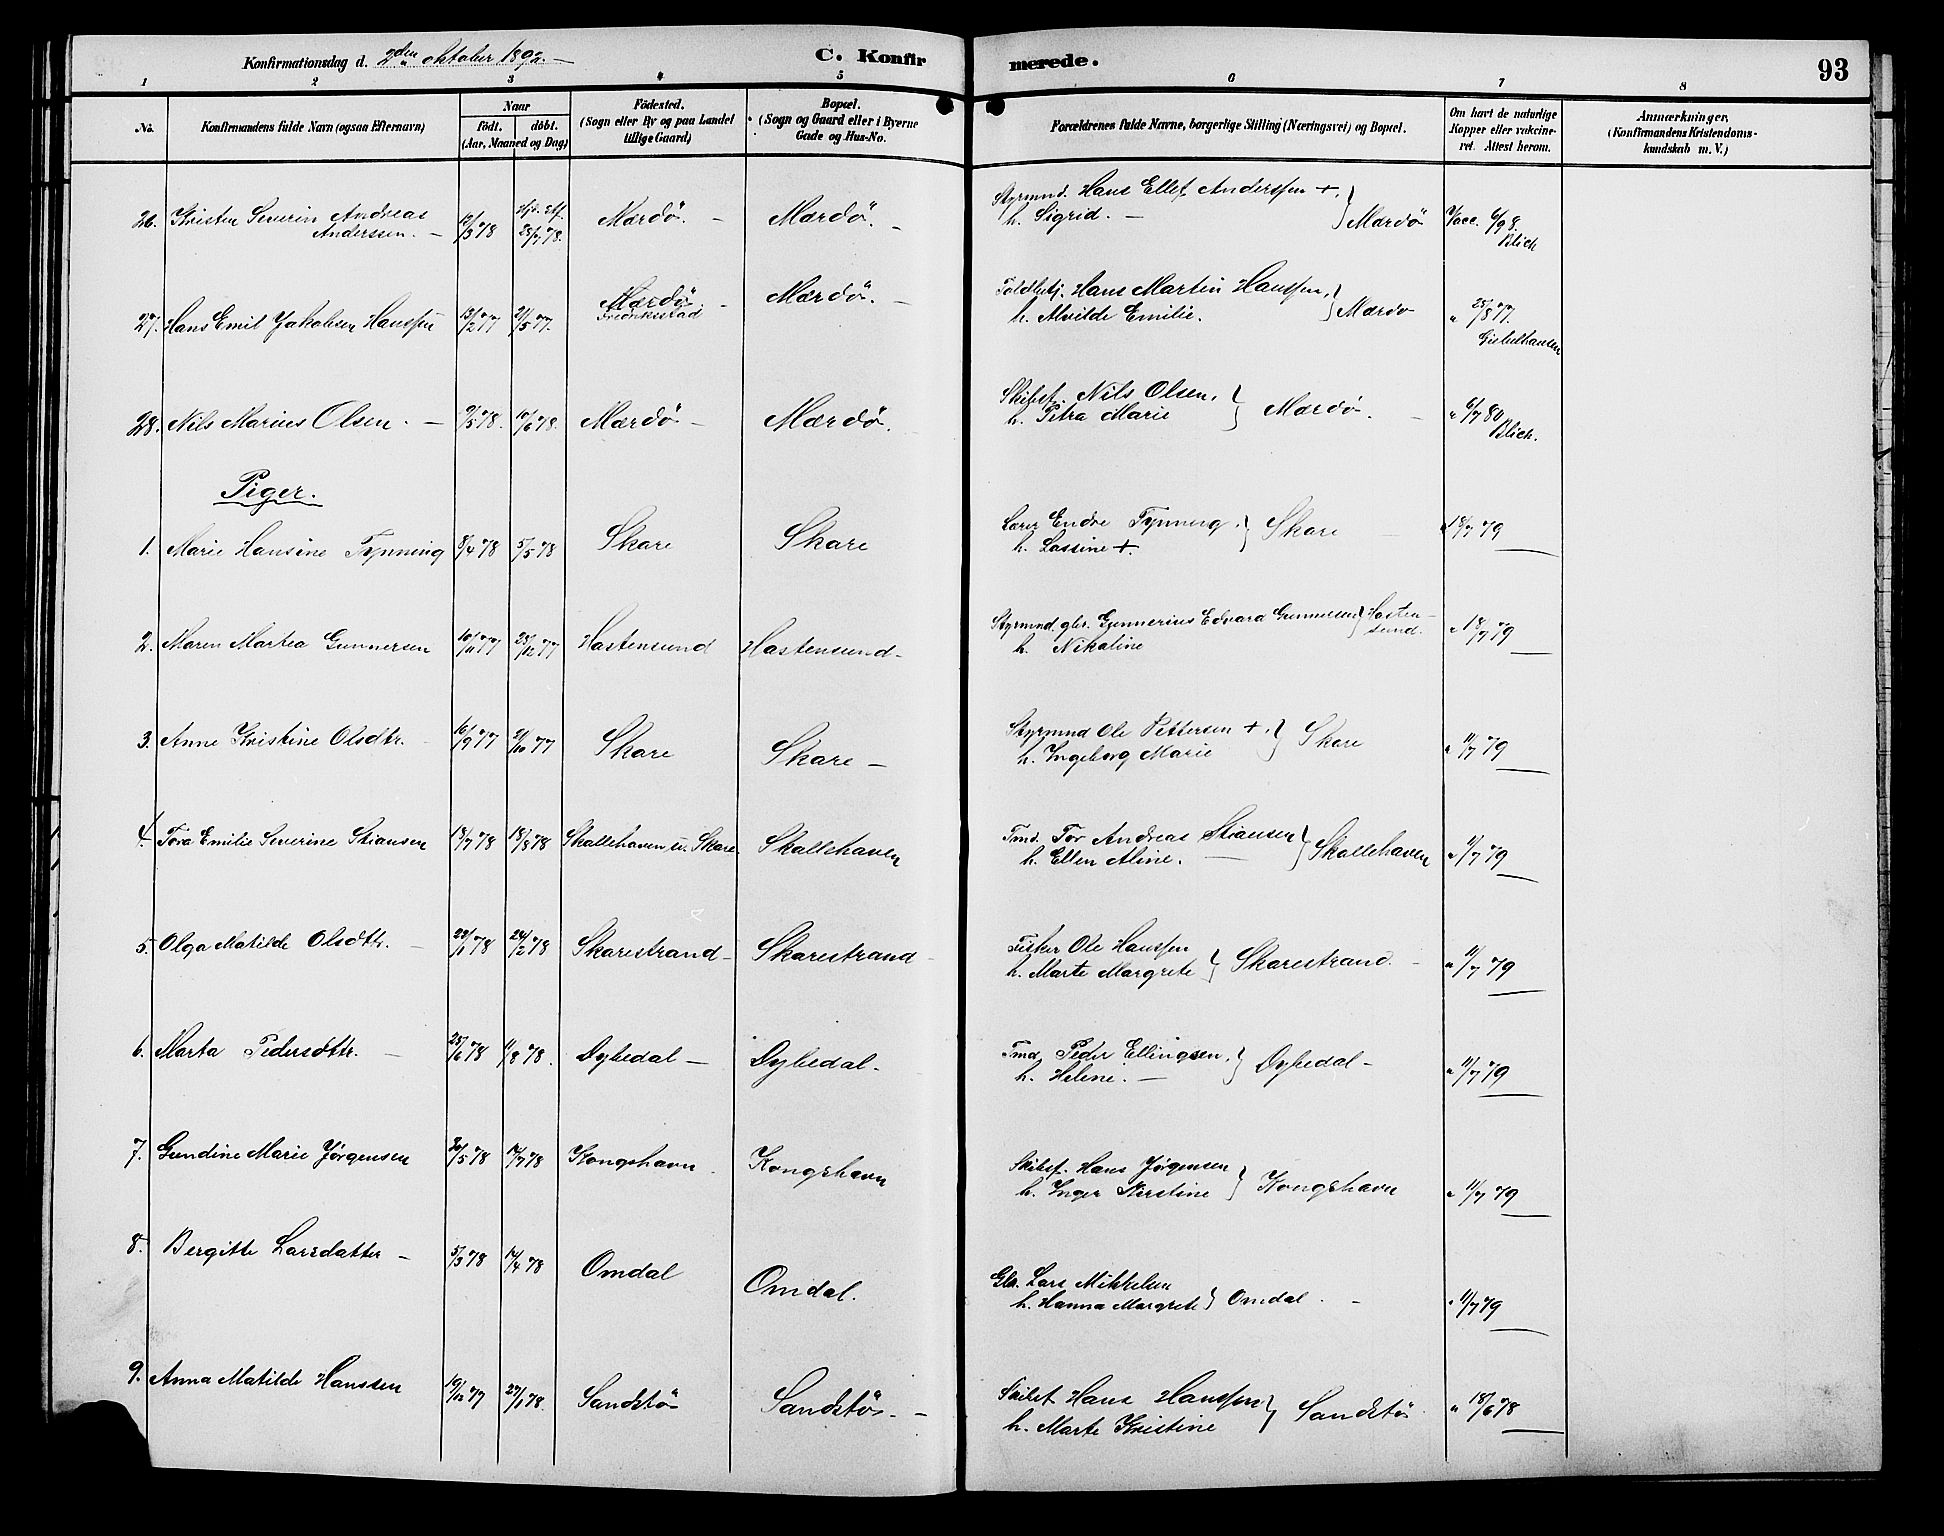 Konfirmationsdag d. 2den oktober 1892. —
C. Konfir merede.
93
1 2 3 4 5 6 7 8
No.
Konfirmandens fulde Navn (ogsaa Efternavn)
Naar
födt. döbt.
(Aar, Maaned og Dag)
Födested.
(Sogn eller By og paa Landet
tillige Gaard)
Bopæl.
(Sogn og Gaard eller i Byerne
Gade og Hus-No.
Forældrenes fulde Navne, borgerlige Stilling (Næringsvei) og Bopæl.
Om havt de naturlige
Kopper eller vakcine-
ret. Attest herom.
Anmærkninger,
(Konfirmandens Kristendoms-
kundskab m. V.)
26. Kristen Severin Andreas
Anderssen. — 12/3 78 Hjd. Stf. 28/4 78. Mærdö. — Mærdö. — Styrmnd. Hans Ellef Anderssen +.
h. Sigrid. — } Mærdö Vacc. 6/9 8.
Blich
27. Hans Emil Jakobsen Hanssen 13/2 77 21/5 77. Mærdö. —
Fredriksstad Mærdö. — Toldbetj. Hans Martin Hanssen,
h. Alvilde Emilie. } Mærdö " 25/8 77.
Giebelhausen
28. Nils Marius Olsen. — 9/5 78. 10/6 78. Mærdö — Mærdö. Skibsf. Nils Olsen,
h. Petra Marie } Mærdö. — " 6/7 80
Blich.
Piger.
1. Marie Hansine Tynning 8/4 78 5/5 78 Skare Skare Lærer Endre Tynning.
h. Lassine +. } Skare — " 18/7 79
2. Maren Martea Gunnersen 10/11 77 28/12 77 Hastensund Hastensund — Styrmnd. gbr. Gunnerius Edvard Gunnersen
h. Nikoline } Hasten-
sund. " 18/7 79
3. Anne Kristine Olsdtr. — 16/9 77 21/10 77 Skare Skare — Styrmnd Ole Pettersen +.
h. Ingeborg Marie } Skare " 11/7 79
4. Tora Emilie Severine Stiansen 13/7 78 18/8 78 Skallehaven u. Skare. Skallehaven Tmd. Tor Andreas Stiansen
h. Ellen Aline. — } Skallehaven " 11/7 79
5. Olga Matilde Olsdtr. — 22/1 78 24/2 78 Skarestrand — Skarestrand — Fisker Ole Hanssen
h. Marte Margrete } Skarestrand. — " 11/7 79
6. Marta Pedersdtr. — 25/6 78 11/8 78. Dybedal — Dybedal. Tmd. Peder Ellingsen.
h. Helene. — } Dybedal — " 11/7 79
7. Gundine Marie Jørgensen 30/5 78 14/7 78 Kongshavn. Kongshavn Skibsf. Hans Jørgensen
h. Inger Kirstine } Kongshavn " 11/7 79
8. Bergitte Larsdatter — 5/3 78 14/4 78 Omdal Omdal. Gbr. Lars Mikkelsen
h. Hanna Margrete } Omdal. — " 11/7 79
9. Anna Matilde Hanssen 19/12 77 27/1 78. Sandstö Sandstö. — Skibsf Hans Hanssen
h. Marte Kristine } Sandstö " 18/6 78